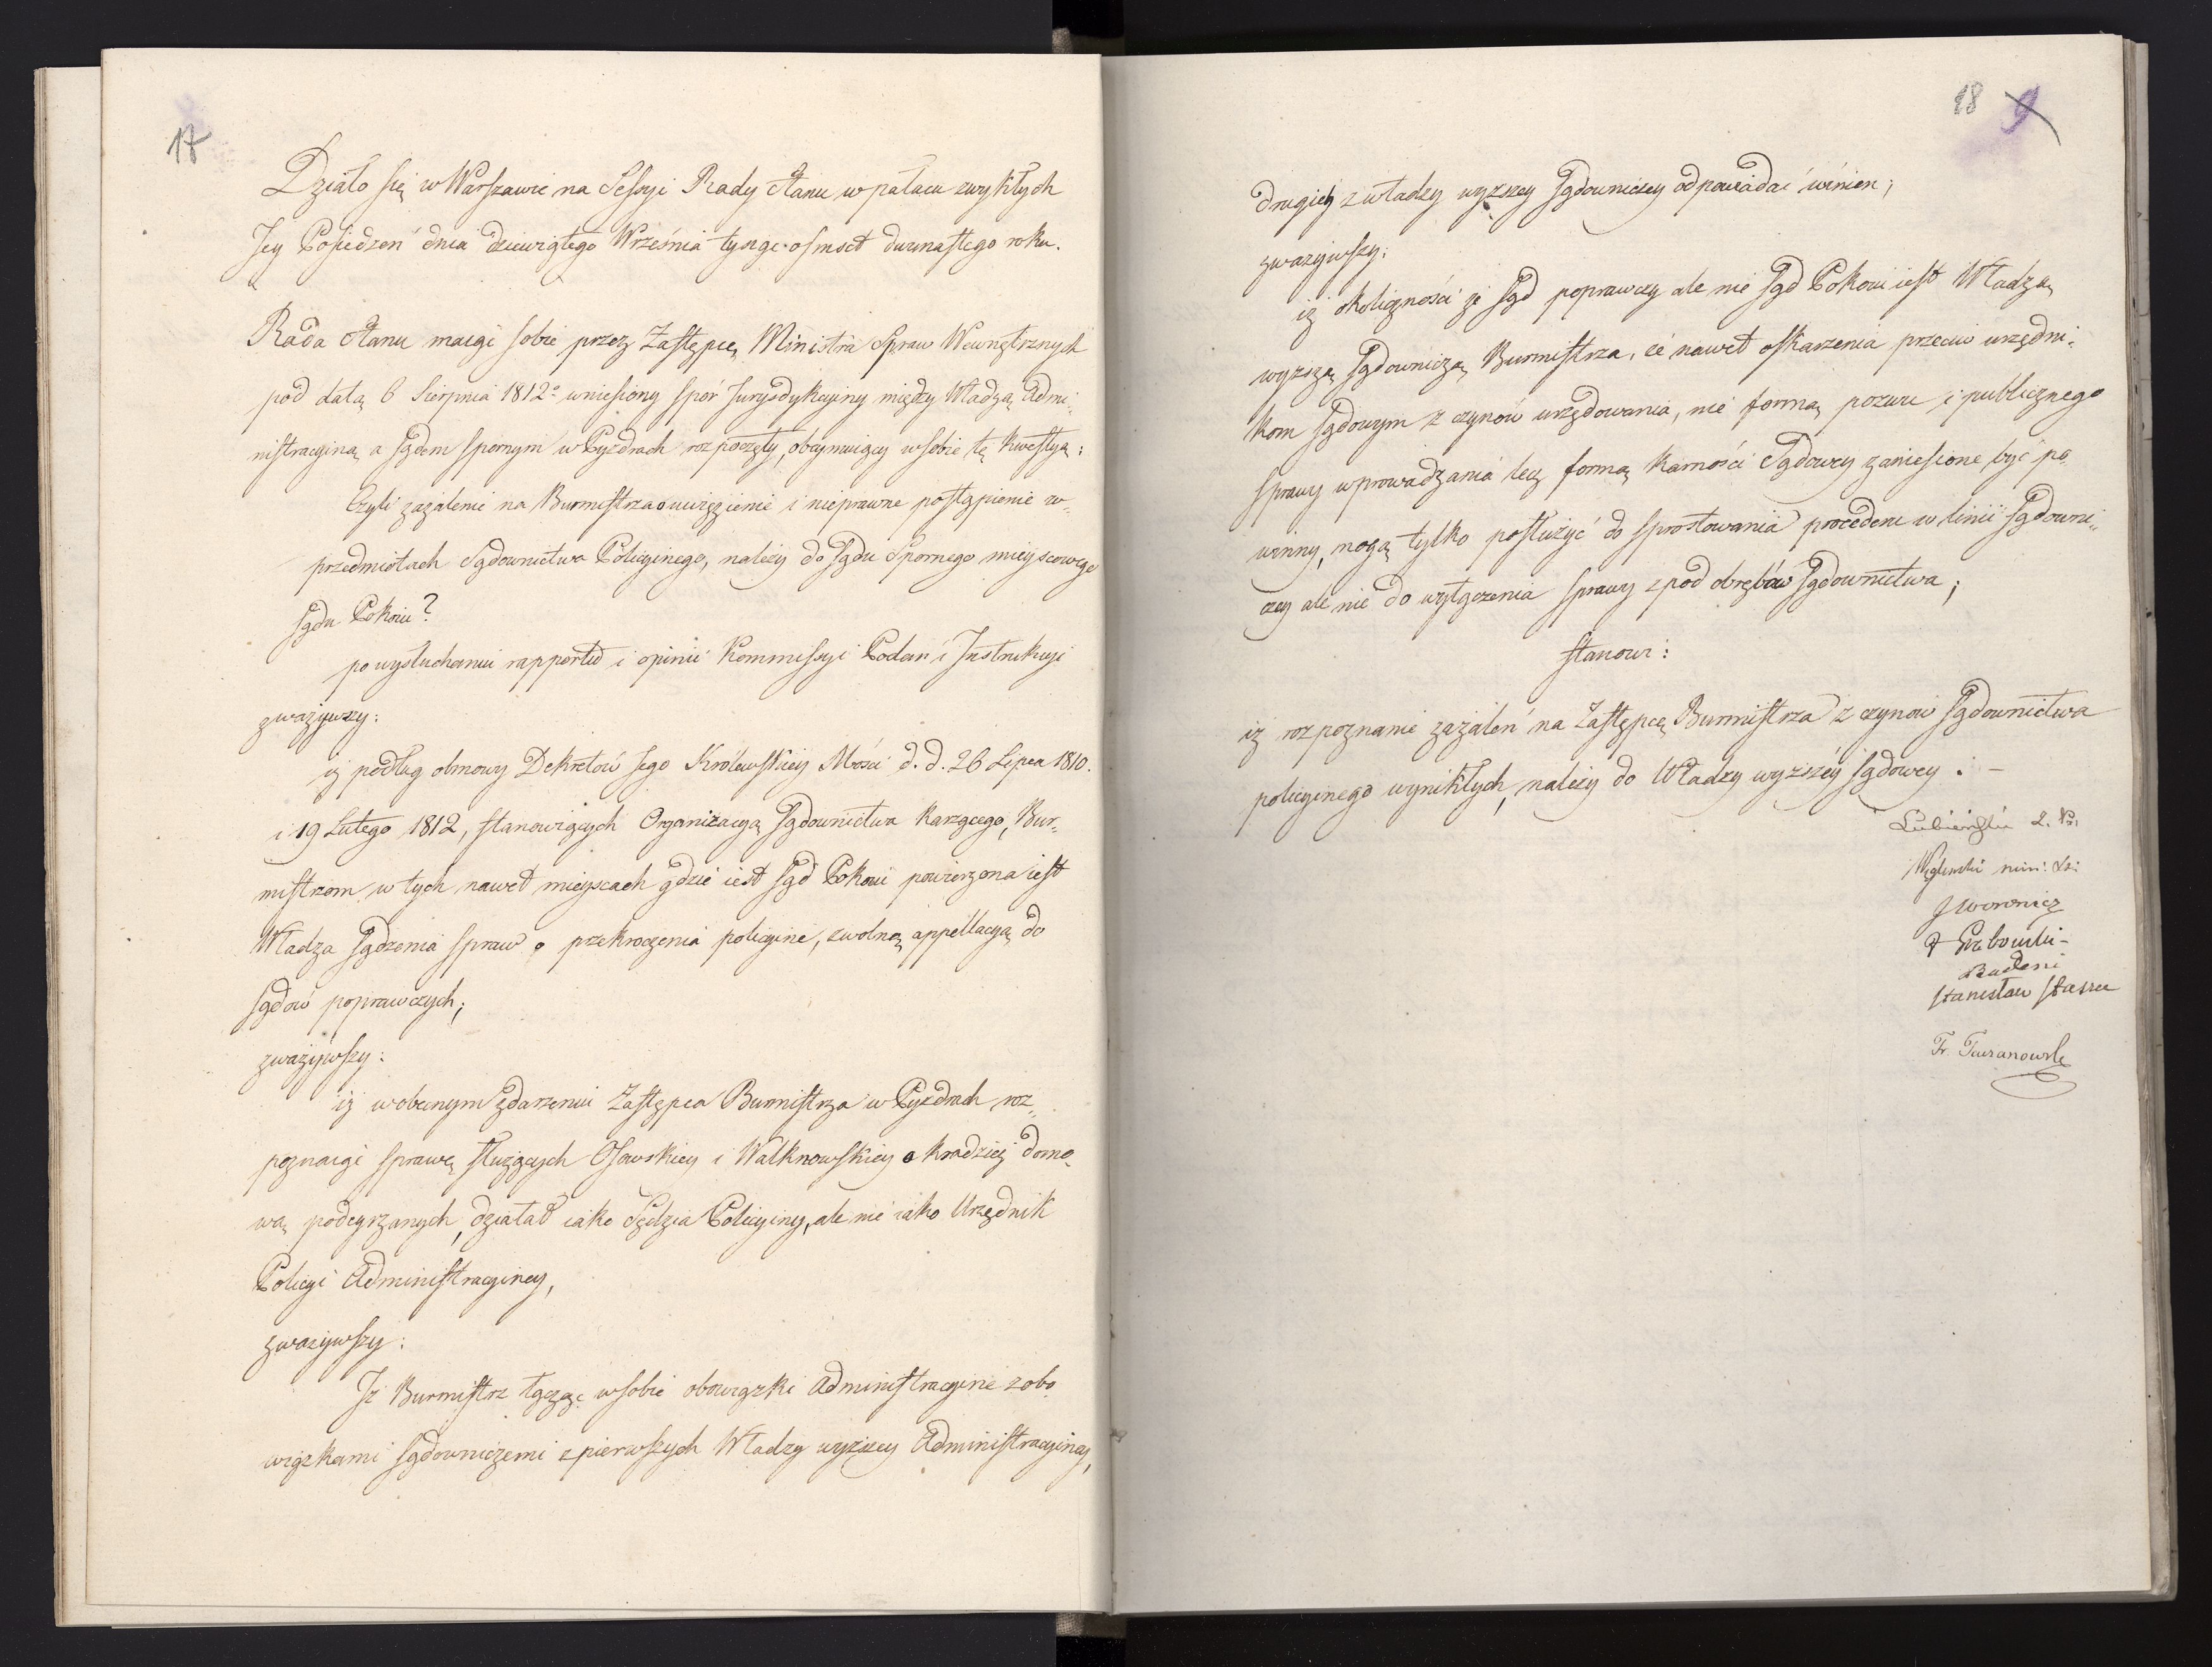 17
Działo się w Warszawie na Sessyi Rady Stanu w pałacu zwykłych
Jey Posiedzeń dnia dziewiątego Września tysiąc osmset dwunastego roku.
Rada Stanu maiąc sobie przez Zastępcę Ministra Spraw Wewnętrznych
pod datą 6 Sierpnia 1812o wniesiony spór Jurysdykcyiny między Władzą Admi„
nistracyiną a Sądem spornym w Pyzdrach rozpoczęty, obeymuiący w sobie tę kwestyą:
Czyli zażalenie na Burmistrza o uwięzienie i nieprawne postąpienie w„
przedmiotach Sądownictwa Policyinego, należy do Sądu Spornego mieyscowego
Sądu Pokoiu?
po wysłuchaniu rapportu i opinii Kommissyi Podań i Instrukcyi
zważywszy:
iż podług osnowy Dekretów Jego Królewskiey Mości d. d. 26 Lipca 1810.
i 19 Lutego 1812, stanowiących Organizacyą Sądownictwa karzącego, Bur„
mistrzom w tych nawet mieyscach gdzie iest Sąd Pokoiu powierzona iest
Władza Sądzenia spraw o przekroczenia policyine, z wolną appellacyą do
Sądów poprawczych;
zważywszy:
iż w obecnym zdarzeniu Zastępca Burmistrza w Pyzdrach roz„
poznaiąc sprawę służących Osowskiey i Walknowskiey o kradzież domo„
wą podeyrzanych, działał iako Sędzia Policyiny, ale nie iako Urzędnik
Policyi Administracyiney,
zważywszy:
Iż Burmistrz łącząc w sobie obowiązki Administracyine z obo
wiązkami Sądowniczemi z pierwszych Władzy wyższey Administracyiney,
18 9
drugich z władzy wyższey Sądowniczey odpowiadać winien;
zważywszy:
iż okoliczności że Sąd poprawczy ale nie Sąd Pokoiu iest Władzą
wyższą Sądowniczą Burmistrza, że nawet oskarżenia przeciw urzędni„
kom Sądowym z czynów urzędowania, nie formą pozwu i publicznego
sprawy wprowadzania lecz formą karności Sądowey zaniesione być po„
winny, mogą tylko posłużyć do sprostowania procederu w linii Sądowni„
czey ale nie do wyłączenia sprawy z pod obrębów Sądownictwa;
stanowi:
iż rozpoznanie zażaleń na Zastępcę Burmistrza z czynów Sądownictwa
policyinego wynikłych, należy do Władzy wyższéy Sądowey. –
Lubieński
Węgleński min:
J Woronicz
Grabowski
Badeni
Stanisław Staszic
Fr. Taranowski